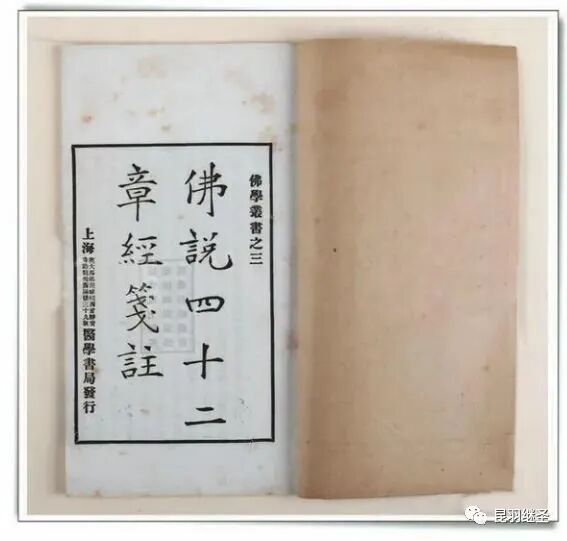 佛學叢書之三
佛説四十二
章經箋註
上海
醫學書局發行
昆羽继圣